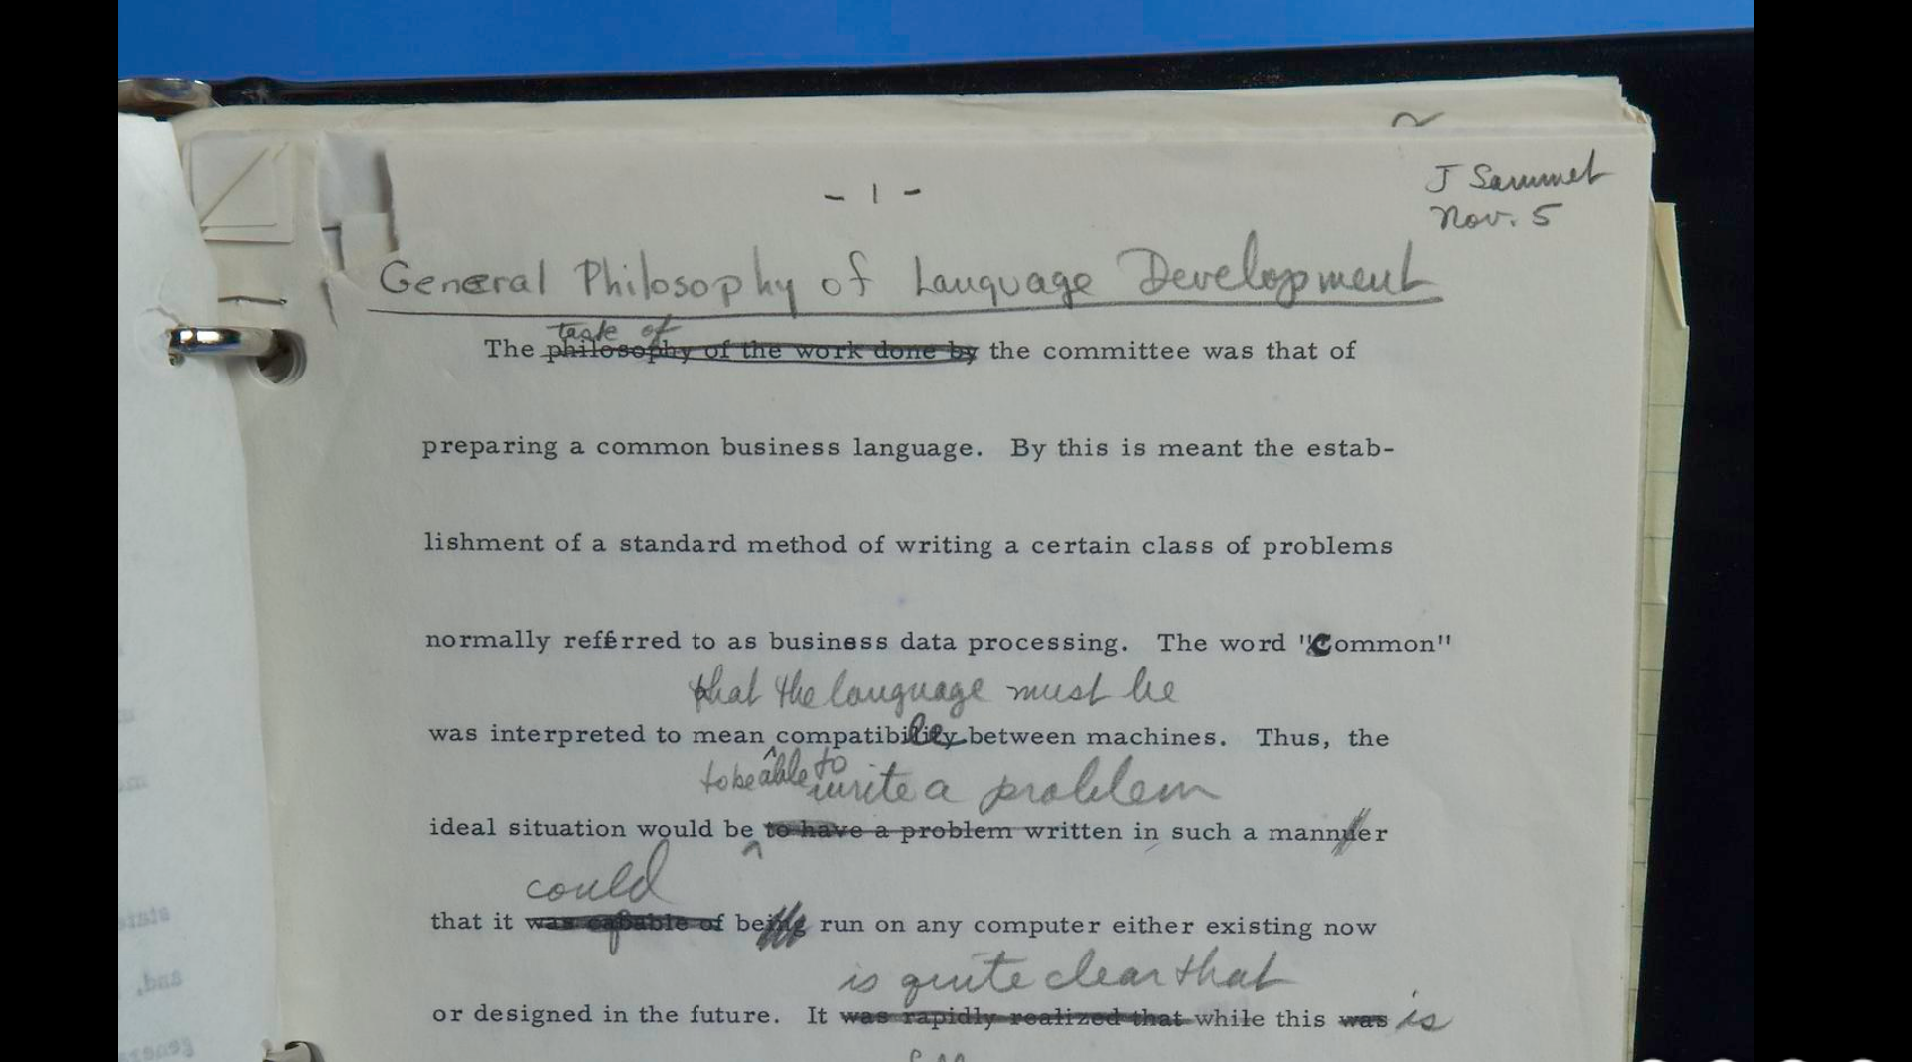 - 1 -
J Sammet
Nov. 5
General Philosophy of Language Development
task of
The philosophy of the work done by the committee was that of
preparing a common business language. By this is meant the estab-
lishment of a standard method of writing a certain class of problems
normally referred to as business data processing. The word "Common"
that the language must be
was interpreted to mean compatibility between machines. Thus, the
to be able to write a problem
ideal situation would be to have a problem written in such a mannner
could
that it was capable of being run on any computer either existing now
is quite clear that
or designed in the future. It was rapidly realized that while this was is